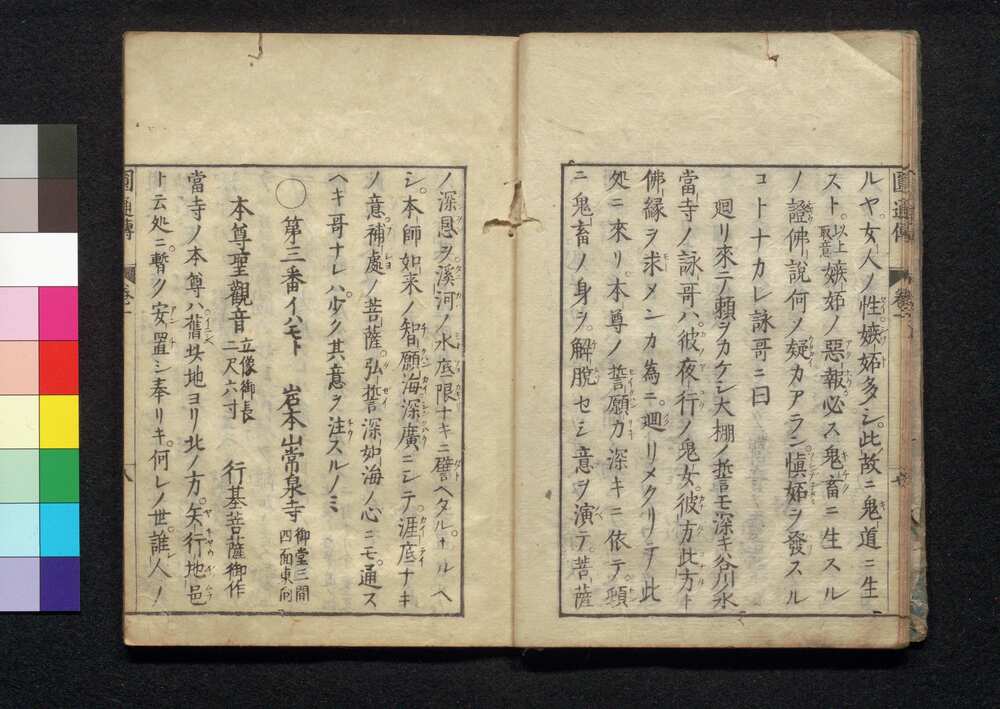 圓通傳 卷一
ルヤ女人ノ性嫉妬多シ此故ニ鬼道ニ生
スト以上取意嫉妬ノ惡報必ス鬼畜ニ生スル
ノ證佛説何ノ疑カアラン愼妬ヲ發スル
コトナカレ詠哥ニ曰
廻リ來テ頼ヲカケシ大棚ノ誓モ深キ谷川ノ水
當寺ノ詠哥ハ彼夜行ノ鬼女彼方此方ト
佛縁ヲ求メンカ為ニ廻リメクリテ此
処ニ來リ本尊ノ誓願力深キニ依テ頓
ニ鬼畜ノ身ヲ解脱セシ意ヲ演テ菩薩
ノ深恩ヲ溪河ノ水底限ナキニ譬ヘタルナルヘ
シ本師如来ノ智願海深廣ニシテ涯底ナキ
ノ意補處ノ菩薩弘誓深如海ノ心ニモ通ス
ヘキ哥ナレハ少ク其意ヲ注スルノミ
○第三番イハモト 岩本山常泉寺 御堂三間四面東向
本尊聖觀音 立像御長二尺六寸 行基菩薩御作
當寺ノ本尊ハ舊此地ヨリ北ノ方矢行地邑
ト云処ニ暫ク安置シ奉リキ何レノ世誰人ノ
圓通傳 卷一 八